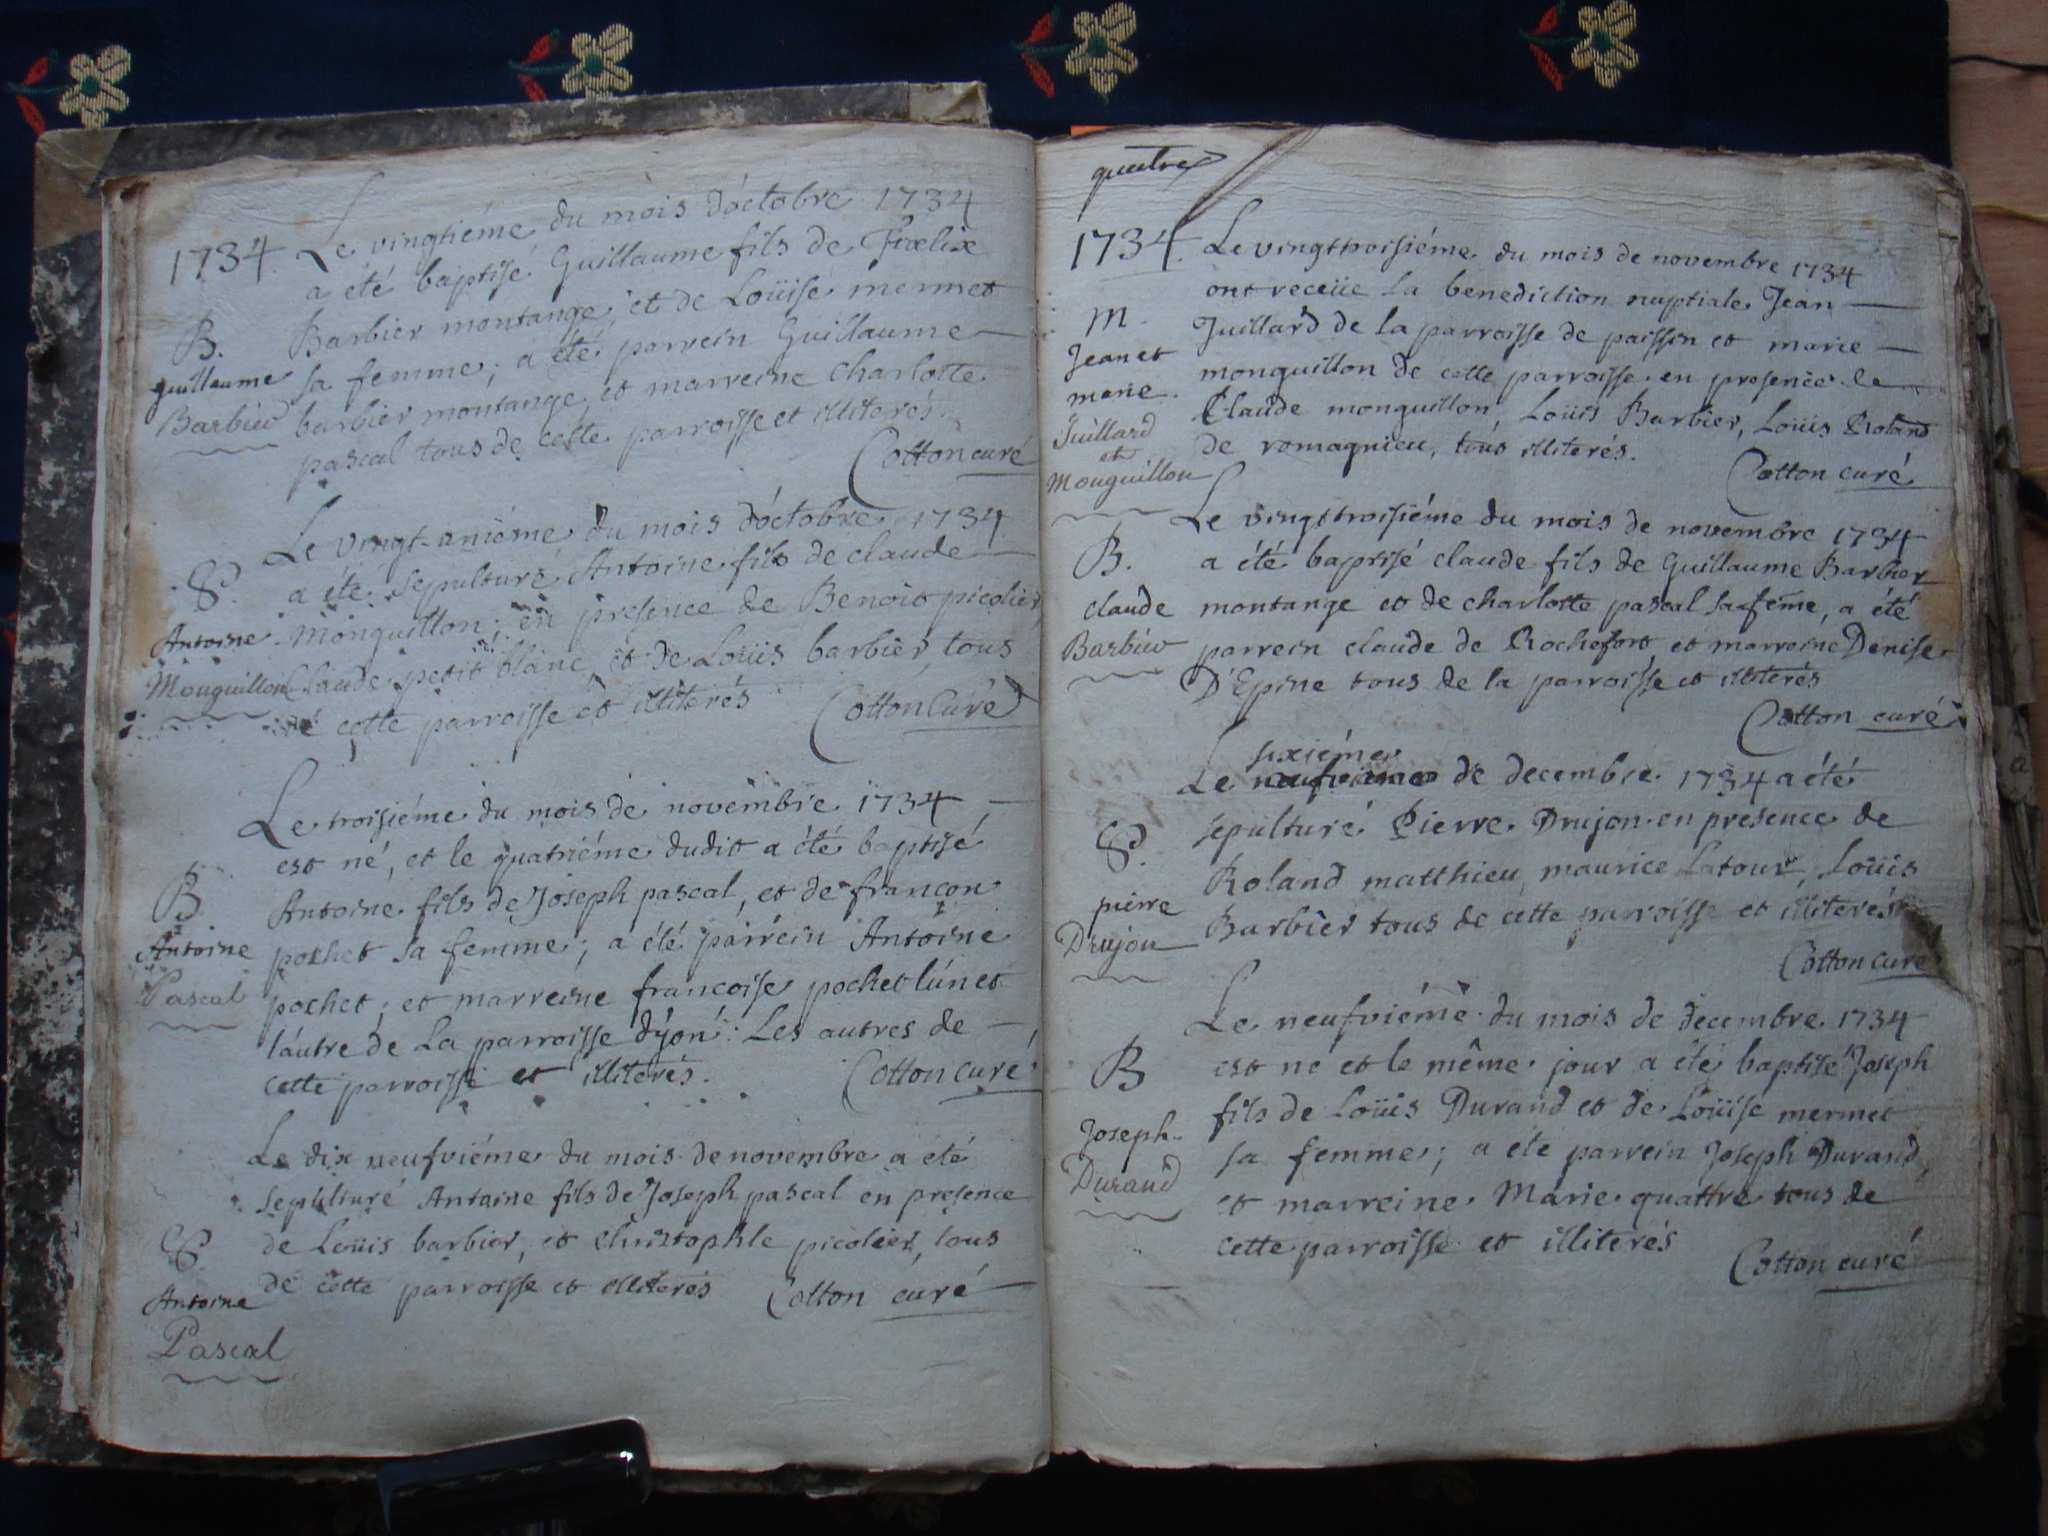 Le vingtiéme du mois d'óctobre 1734
1734. a été baptisé Guillaume fils de Fœlix
B. Barbier montange, et de Loüise mermet
guillaume sa femme; a été parrein Guillaume
Barbier barbier montange et marreine Charlotte
pascal tous de cette parroisse et illiterés.
Cotton curé
Le vingt-uniéme du mois d'óctobre 1734
S. a été sepulturé Antoine fils de claude
Antoine monguillon; en presence de Benoit picolier
Monguillon Claude petit blanc et de Loüis barbier, tous
de cette parroisse et illiterés Cotton Curé
Le troisiéme du mois de novembre 1734
est né, et le quatriéme dudit a été baptisé
B Antoine fils de Joseph pascal, et de françon
Antoine pochet sa femme; a été parrein Antoine
Pascal pochet; et marreine francoise pochet l'ún et
l'áutre de La parroisse d'yon: Les autres de
cette parroisse et illiterés. Cotton curé
Le dix neufviéme du mois de novembre a été
sepulturé Antoine fils de Joseph pascal en presence
S. de Loüis barbier, et Christophle picolier, tous
Antoine de cette parroisse et illiterés Cotton curé
Pascal
quatre
1734. Le vingttroisiéme du mois de novembre 1734
ont receüe la benediction nuptiale Jean
M. Juillard de la parroisse de paissin et marie
Jean et monguillon de cette parroisse en presence de
marie. Claude monguillon, Loüis Barbier, Loüis Roland
Juillard de romagnieu, tous illiterés.
et
Monguillon Cotton curé
Le vingttroisiéme du mois de novembre 1734
B. a été baptisé claude fils de Guillaume Barbier
claude montange et de charlotte pascal sa feme, a été
Barbier parrein claude de Rochefort, et marreine Denise
D'Epine tous de la parroisse et illiterés
Cotton curé
sixiéme
Le neufvieme de decembre 1734 a été
S. sepulturé Pierre Drujon en presence de
Roland matthieu, maurice Latour, Loüis
pierre Barbier tous de cette parroisse et illiterés
Drujon Cotton curé
Le neufviéme du mois de decembre 1734
B est né et le même jour a été baptisé Joseph
fils de Loüis Durand et de Loüise mermet
Joseph sa femme; a été parrein Joseph Durand,
Durand et marreine Marie quattre tous de
cette parroisse et illiterés
Cotton curé